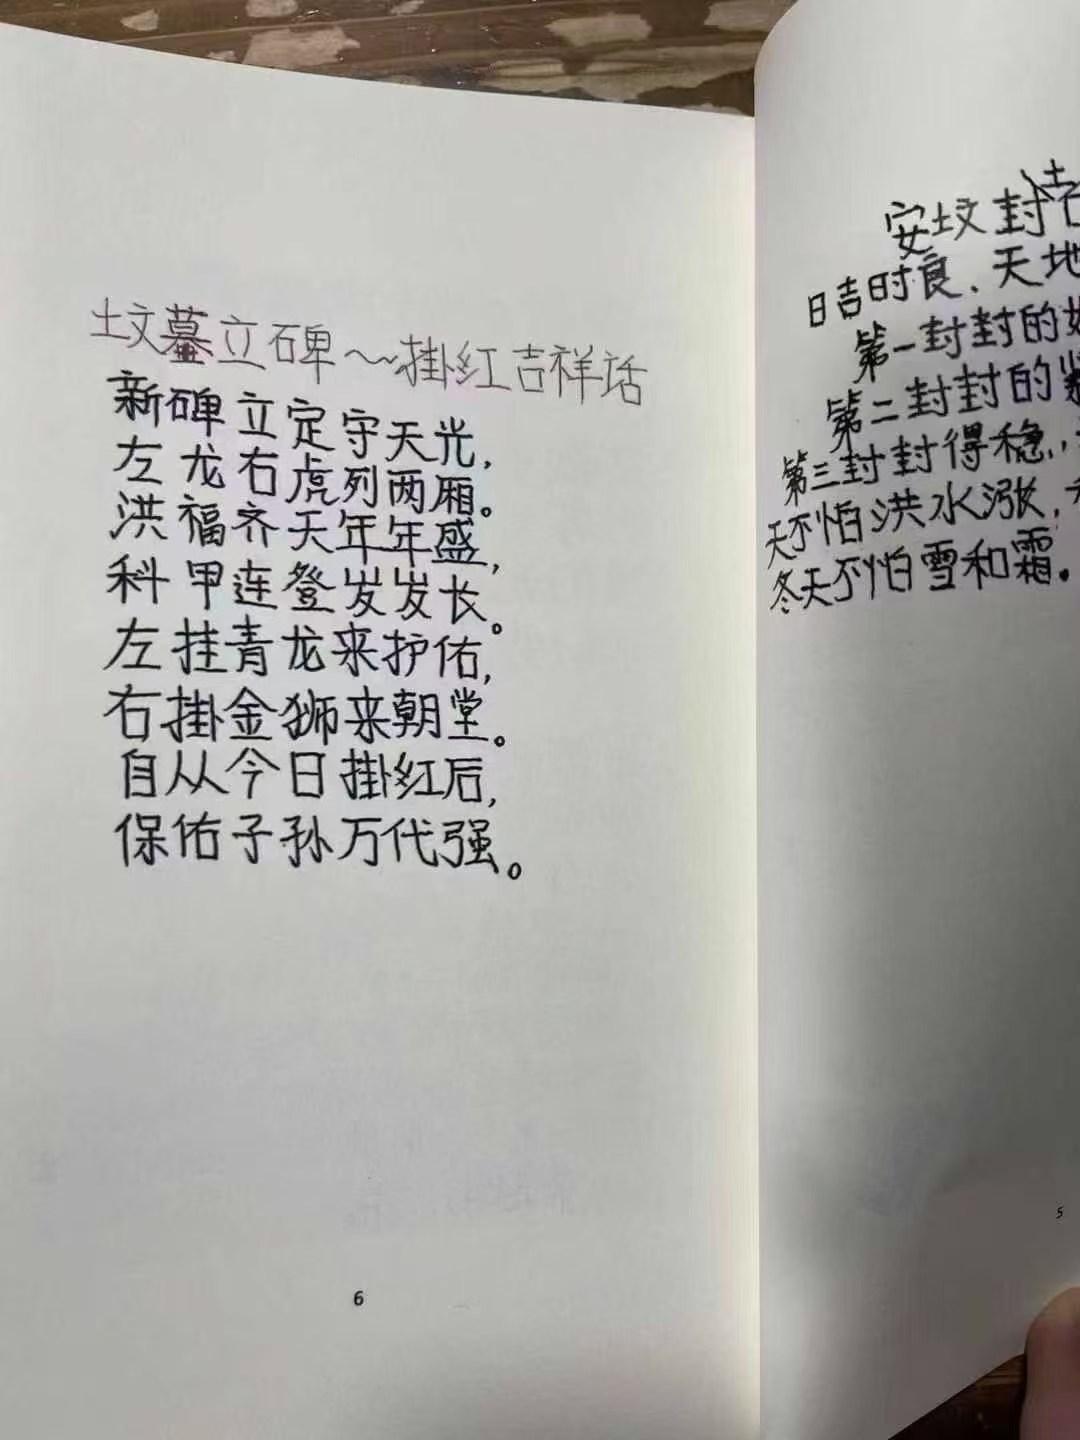 坟墓立碑～掛红吉祥话
新碑立定守天光,
左龙右虎列两厢。
洪福齐天年年盛,
科甲连登发发长。
左挂青龙来护佑,
右掛金狮来朝堂。
自从今日掛红后,
保佑子孙万代强。
6
安坟封
日吉时良、天地
第一封封的
第二封封的
第三封封得稳,
天不怕洪水涨,
冬天不怕雪和霜。
5